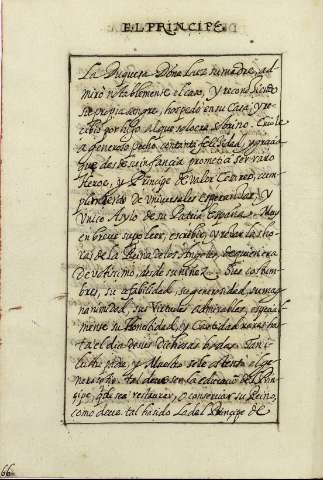 EL PRINCIPE.
La Duquesa Doña Luz su madre, ad-
miró notablemente el caso, y reconociendo
su propia sangre, hospedó en su Casa, y re-
cibio por hijo al que solo era sobrino. Criole
a generoso pecho con tanta felicidad, y gracia
que desde su infancia prometia ser raro
Heroe, y Principe de valor Celeste, cum-
plimiento de universales esperanzas, y
Vnico Asylo de su Patria España. Muy
en breve supo leer, escribir, y rezar las Ho-
ras de la Reina de los Angeles, de quien era
devotisimo, desde su niñez. Sus costum-
bres, su afabilidad, su generosidad, su mag-
nanimidad, sus virtudes admirables, especial-
mente su Honestidad, y Castidad raras has-
ta el dia de sus Dichosas bodas.
padre, y Maestro
tal deve ser la educacion del Prin-
cipe, qe. sea restaurar, o conservar su Reino,
como deve tal ha sido la del Principe de
66